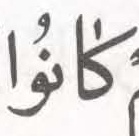 كَانُوا